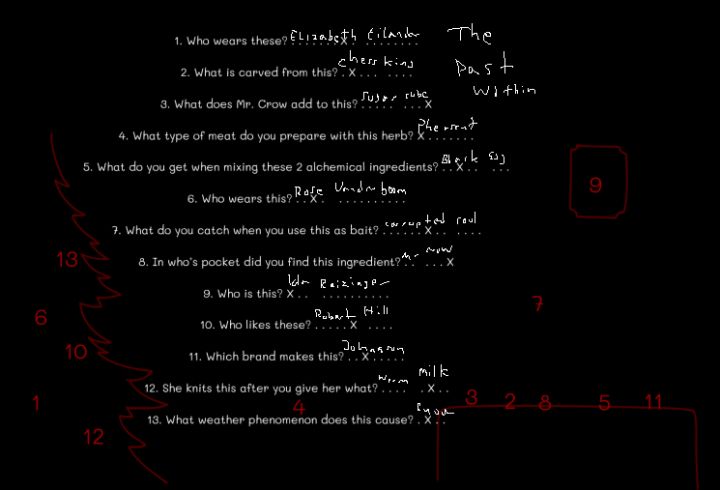 1. Who wears these? Elizabeth Eilander
The
2. What is carved from this? chess king
past
within
3. What does Mr. Crow add to this? Sugar cube
4. What type of meat do you prepare with this herb? Pheasant
5. What do you get when mixing these 2 alchemical ingredients? Black egg
9
6. Who wears this? Rose Vanderboom
7. What do you catch when you use this as bait? corrupted soul
8. In who's pocket did you find this ingredient? Mr
13
9. Who is this? Ida Reiziger
7
6
10. Who likes these? Robert Hill
10
11. Which brand makes this? Johnson
12. She knits this after you give her what? warm milk
1
4
3 2 8 5 11
13. What weather phenomenon does this cause?
12